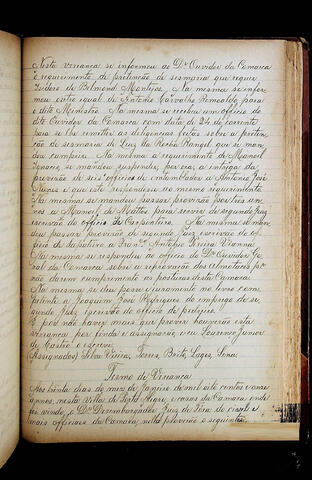 Nesta vereança se informou ao Dr Ouvidor da Comarca
o requerimento de pretenção de sesmaria que requer
Izidoro de Belmond Montijos. Na mesma se infor
mou outro igual de Antonio Carvalho para
o dito Ministro. Na mesma se recebeu um officio do
dito Ouvidor da Comarca com data de 24 do corrente
para se lhe remetter as deligencias feitas sobre a preten
ção de sesmaria de Luiz da Rocha Rangel que se man
dou cumprir. Na mesma a requerimento de Manoel
se mandou suspender, por ora, a intriga da
provisão de seus officios de a Antonio José
Nunes e que este respondesse ao mesmo requerimento.
Na mesma se mandou passar provisão por tres an
nos a Manoel de Mattos para servir de segundo Juiz
escrivão do officio de Carpinteiro. Na mesma se man
dou passar provisão de segundo Juiz escrivão de of
ficio de sapateiro a Franco Antonio Vianna.
Na mesma se respondeu ao officio do Dr Ouvidor Ge
ral da Comarca sobre a reprovação dos Almotacés por
não darem cumprimento as posturas desta Camara.
Na mesma se deu posse e juramento no livro com
petente a Joaquim José Rodrigues do emprego de se
gundo Juiz escrivão do officio de
E por não haver mais que prover houverão esta
vereança por finda e assignarão, e eu Lourenço Junior
de Castro o escrevi.
Assignados) Silva Vieira, Torres, Brito, Lages, Sena.
Termo de Vereança
Aos trinta dias do mez de Janeiro de mil oito centos e onze
annos, nesta Villa de Porto Alegre, e casas da Camara onde
foi vindo, o Dr Dezembargador Juiz de Fora, e
mais officiaes da Camara, nella proverão o seguinte.